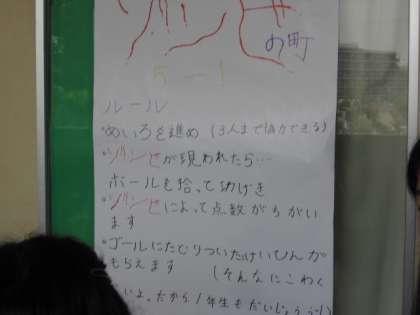 ゾンビ
の町
5-1
ルール
・めいろを進め(3人まで協力できる)
・ゾンビが現われたら…
ボールを拾って投げき
・ゾンビによって点数がちがい
ます
・ゴールにたどりついたけいひんが
もらえます (そんなにこわく
いよ。だから1年生もだいじょうぶ!)